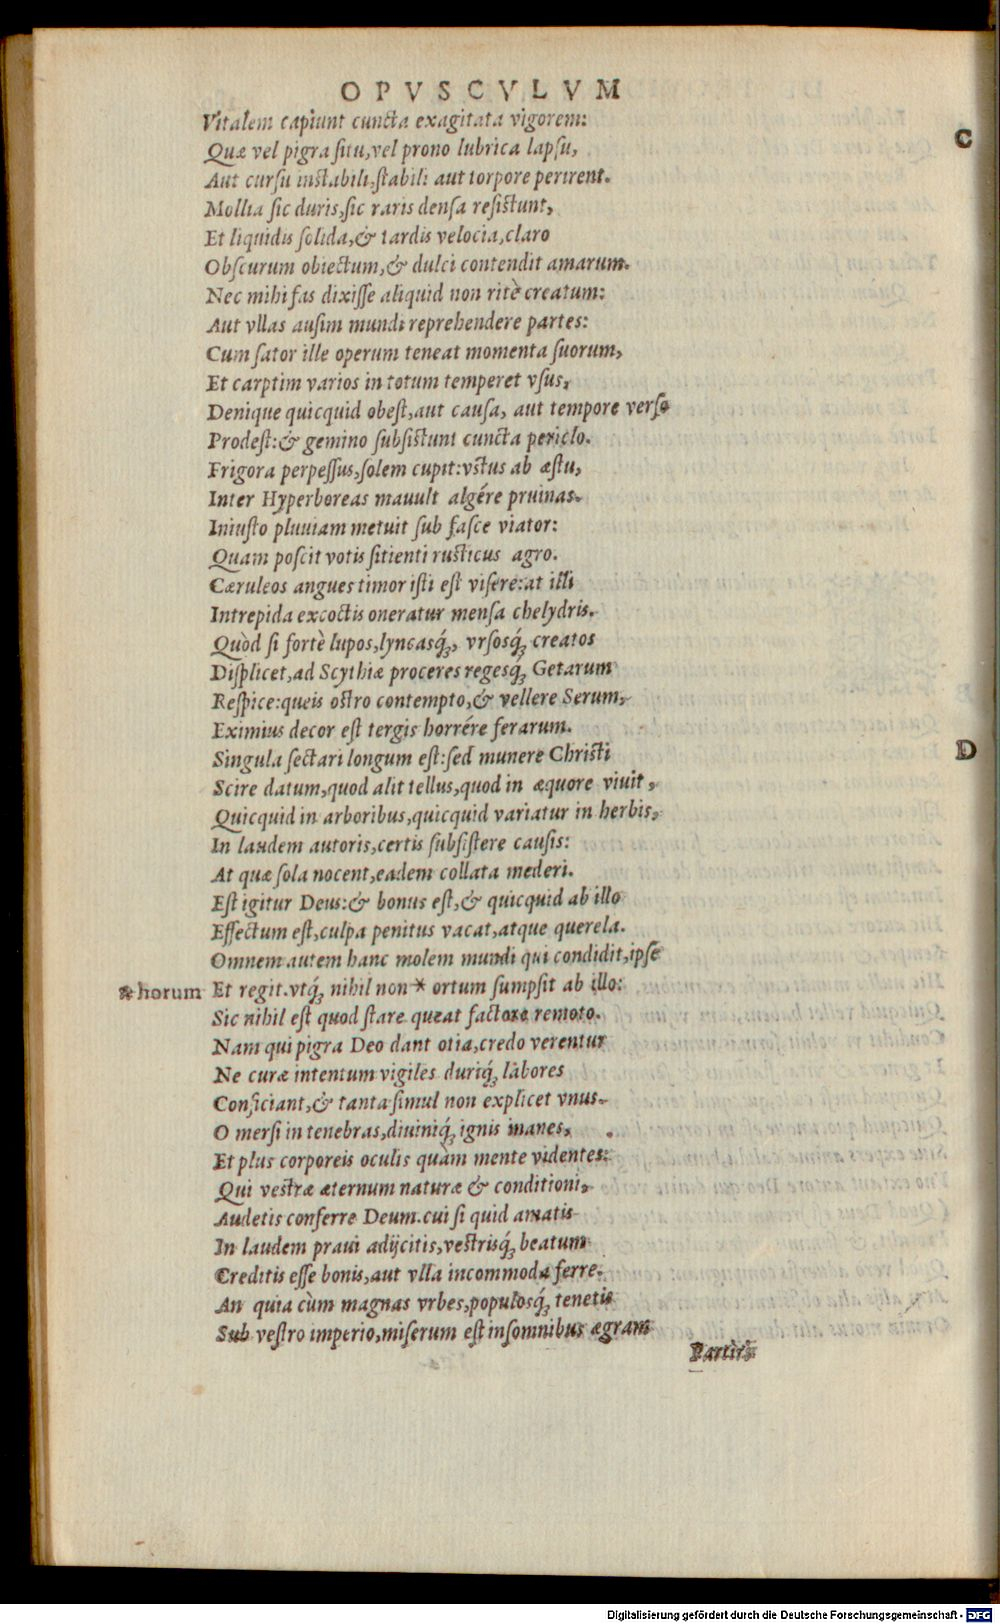 OPVSCVLVM
Vitalem capiunt cuncta exagitata vigorem:
Quæ vel pigra situ, vel prono lubrica lapsu,
Aut cursu instabili, stabili aut torpore perirent.
Mollia sic duris, sic raris densa resistunt,
Et liquidis solida, & tardis velocia, claro
Obscurum obiectum, & dulci contendit amarum.
Nec mihi fas dixisse aliquid non ritè creatum:
Aut vllas ausim mundi reprehendere partes:
Cum sator ille operum teneat momenta suorum,
Et carptim varios in totum temperet vsus,
Denique quicquid obest, aut causa, aut tempore verso
Prodest: & gemino subsistunt cuncta periclo.
Frigora perpessus, solem cupit: vstus ab æstu,
Inter Hyperboreas mauult algére pruinas.
Iniusto pluuiam metuit sub fasce viator:
Quam poscit votis sitienti rusticus agro.
Cæruleos angues timor isti est visere: at illi
Intrepida excoctis oneratur mensa chelydris.
Quòd si fortè lupos, lyncasq́3, vrsosq́3 creatos
Displicet, ad Scythiæ proceres regesq́3 Getarum
Respice: queis ostro contempto, & vellere Serum,
Eximius decor est tergis horrére ferarum.
Singula sectari longum est: sed munere Christi
Scire datum, quod alit tellus, quod in æquore viuit,
Quicquid in arboribus, quicquid variatur in herbis,
In laudem autoris, certis subsistere causis:
At quæ sola nocent, eadem collata mederi.
Est igitur Deus: & bonus est, & quicquid ab illo
Effectum est, culpa penitus vacat, atque querela.
Omnem autem hanc molem mundi qui condidit, ipse
* horum Et regit. vtq́3 nihil non * ortum sumpsit ab illo:
Sic nihil est quod stare queat factore remoto.
Nam qui pigra Deo dant otia, credo verentur
Ne curæ intentum vigiles duriq́3 labores
Conficiant, & tanta simul non explicet vnus.
O mersi in tenebras, diuiniq́3 ignis inanes,
Et plus corporeis oculis quàm mente videntes:
Qui vestræ æternum naturæ & conditioni,
Audetis conferre Deum. cui si quid amatis
In laudem praui adijcitis, vestrisq́3 beatum
Creditis esse bonis, aut vlla incommoda ferre.
An quia cùm magnas vrbes, populosq́3 tenetis
Sub vestro imperio, miserum est insomnibus ægram
Partiri
C
D
Digitalisierung gefördert durch die Deutsche Forschungsgemeinschaft - DFG